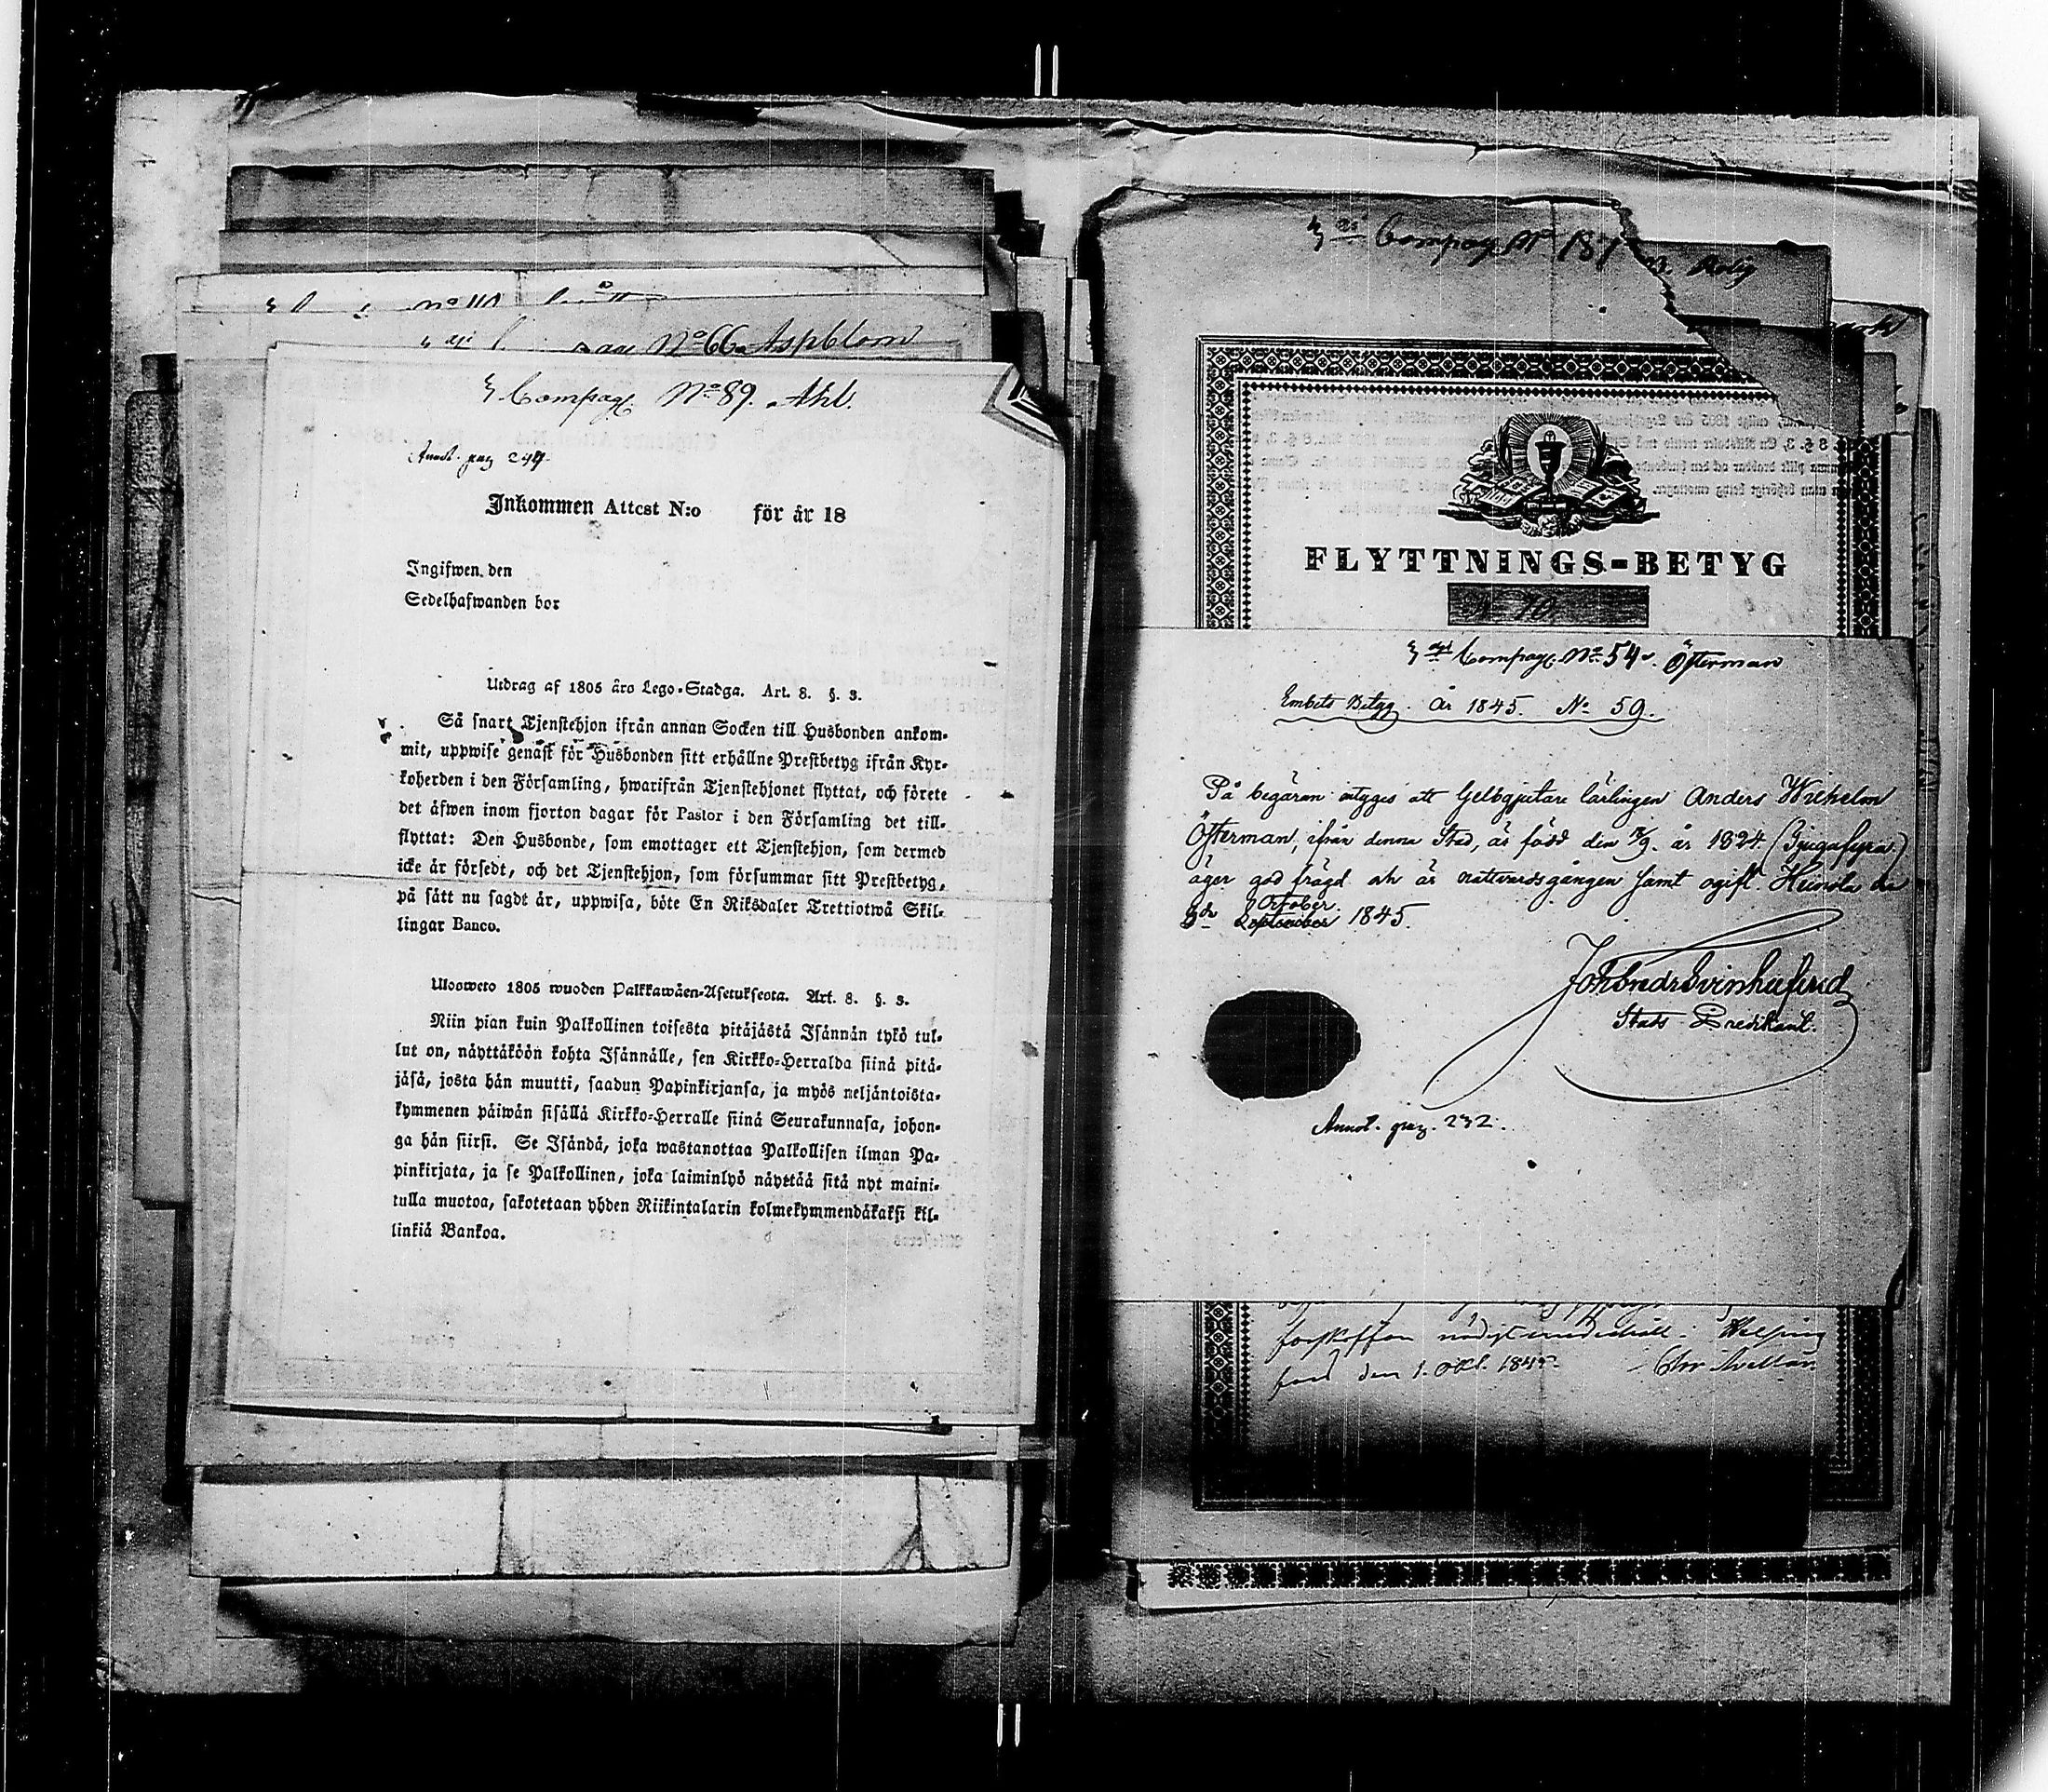 No 66 Aspblom
Compag. No 89. Ahl.
Annot. pag 244.
Inkommen Attest N:o för år 18
Ingifwen den
Sedelhafwanden bor
Utdrag af 1805 års Lego-Stadga. Art. 8. §. 3.
Så snart Tjenstehjon ifrån annan Socken till Husbonden ankom-
mit, uppwise genast för Husbonden sitt erhållne Prestbetyg ifrån Kyr-
koherden i den Församling, hwarifrån Tjenstehjonet flyttat, och förete
det äfwen inom fjorton dagar för Pastor i den Församling det till-
flyttat: Den Husbonde, som emottager ett Tjenstehjon, som dermed
icke är försedt, och det Tjenstehjon, som försummar sitt Prestbetyg,
på sätt nu sagdt är, uppwisa, böte En Riksdaler Trettiotwå Skil-
lingar Banco.
Ulosweto 1805 wuoden Palkkawäen-Asetuksesta. Art. 8. §. 3.
Niin pian kuin Palkollinen toisesta pitäjästä Isännän tykö tul-
lut on, näyttäköön kohta Isännälle, sen Kirkko-Herralda siinä pitä-
jäsä, josta hän muutti, saadun Papinkirjansa, ja myös neljäntoista-
kymmenen päiwän sisällä Kirkko-Herralle siinä Seurakunnasa, johon-
ga hän siirsi. Se Isändä, joka wastanottaa Palkollisen ilman Pa-
pinkirjata, ja se Palkollinen, joka laiminlyö näyttää sitä nyt maini-
tulla muotoa, sakotetaan yhden Riikintalarin kolmekymmendäkaksi kil-
linkiä Bankoa.
Compag No 181
Rolig
FLYTTNINGS-BETYG
N 70
Compag. No 54. Österman
Embets Betyg. år 1845. No 59.
På begäran intygges att Gelbgjutare lärlingen Anders Wilhelm
Österman, ifrån denna Stad, är född den /9. år 1824 (Tjugufyra)
äger god frägd och är nattvardsgången samt ogift. Heinola den
3de September October. 1845.
Joh Svinhufvud
Stads Predikant.
Annot. pag. 232.
den 1. Okt. 1845